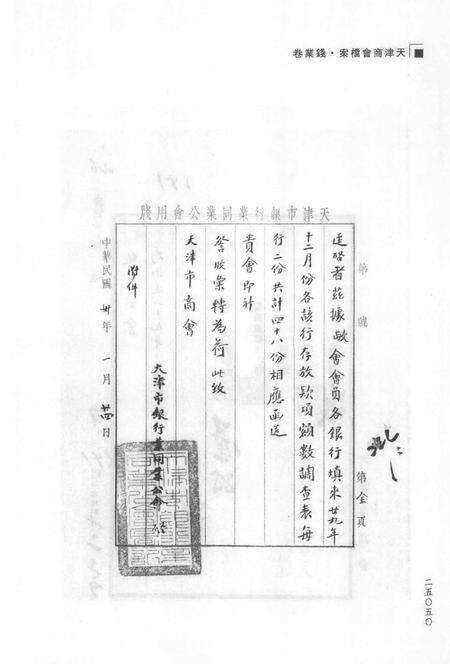 天津商會檔案·錢業卷
天津市銀行業同業公會用牋
第 號
第全頁
逕啓者茲據敝會會員各銀行填來廿九年
十二月份各該行存放款項額數調查表每
行二份共計四十八份相應函送
貴會即祈
詧收彙轉為荷此致
天津市商會
附件
天津市銀行業同業公會啓
中華民國卅年一月廿四日
二五〇五〇